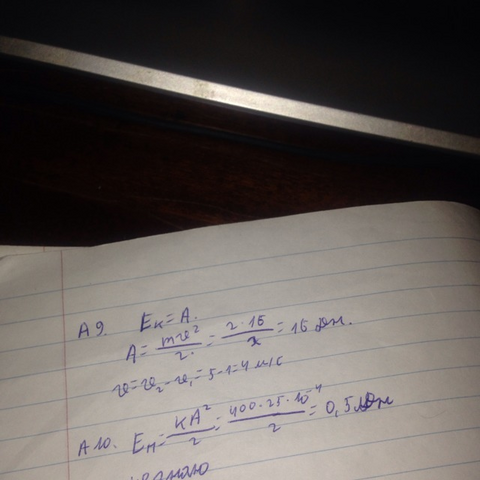 А9. Eк = A.
A = mv²/2 = 2·16/2 = 16 Дж.
v = v₂ - v₁ = 5 - 1 = 4 м/с
А10. Eп = кA²/2 = 400·25·10⁻⁴/2 = 0,5 Дж